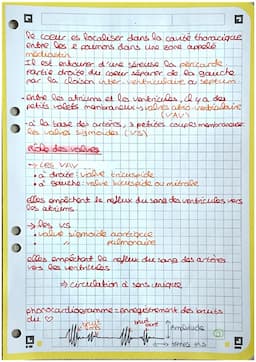 le coeur es localiser dans la cavité thoracique
entre les 2 poumons dans une zone appelé
médiastin
Il est entourer d'une séreuse la péricarde
partie droite du coeur séparer de la gauche
par la cloison inter-ventriculaire ou septum
- entre les atriums et les ventricules, il y a des
petits volets membraneux → valves atrio-ventriculaire
(VAV)
- à la base des artères, 3 petites coupes membraneuses
les valves sigmoïdes (VS)
Rôle des valves
→ les VAV
• a droite : valve tricuspide
• a gauche : valve bicuspide ou mitrale
elles empêchent le reflux du sang des ventricules vers
les atriums.
→ les VS
• valve sigmoïde aortique
• " " pulmonaire
elles empêchent le reflux du sang des artères
vers les ventricules
⇒ circulation à sens unique
phonocardiogramme : enregistrement des bruits
du ♡
bruit bruit
Amplitude
→ temps